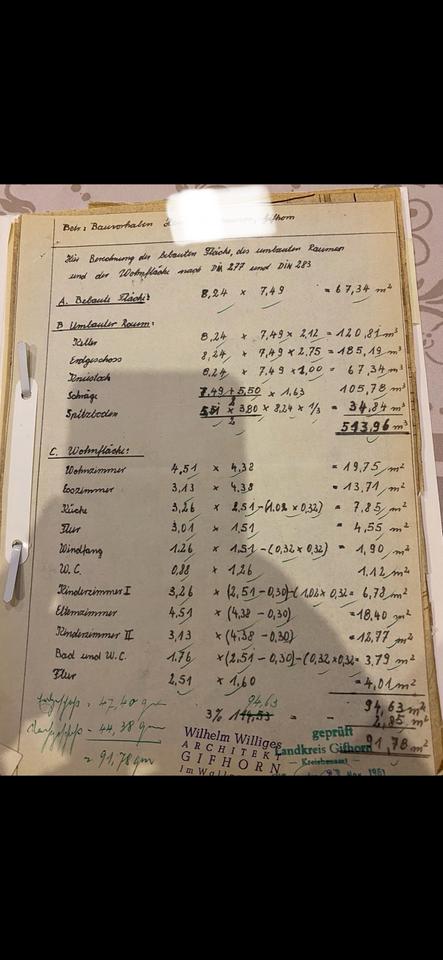 Betr: Bauvorhaben Gifhorn
Für Berechnung der bebauten Fläche, des umbauten Raumes
und der Wohnfläche nach DIN 277 und DIN 283
A. Bebaute Fläche: 8,24 x 7,49 = 67,34 m²
B Umbauter Raum:
Keller 8,24 x 7,49 x 2,12 = 120,81 m³
Erdgeschoss 8,24 x 7,49 x 2,75 = 185,19 m³
Kniestock 8,24 x 7.49 x 1,00 = 67,34 m³
Schräge 7,49 + 5,50 / 2 x 1,63 105,78 m³
Spitzboden 5,51 x 3,80 x 8,24 x 1/3 / 2 = 34,84 m³
513,96 m³
C. Wohnfläche:
Wohnzimmer 4,51 x 4,38 = 19,75 m²
Esszimmer 3,13 x 4,38 = 13,71 m²
Küche 3,26 x 2,51 - (1,02 x 0,32) = 7,85 m²
Flur 3,01 x 1,51 = 4,55 m²
Windfang 1,26 x 1,51 - (0,32 x 0,32) = 1,90 m²
W.C. 0,88 x 1,26 1,12 m²
Kinderzimmer I 3,26 x (2,51 - 0,30) - (1,02 x 0,32 = 6,78 m²
Elternzimmer 4,51 x (4,38 - 0,30) = 18,40 m²
Kinderzimmer II 3,13 x (4,38 - 0,30) = 12,77 m²
Bad und W.C. 1,76 x (2,51 - 0,30) - (0,32 x 0,32 = 3,79 m²
Flur 2,51 x 1,60 = 4,01 m²
= 47,40 qm 94,63 94,63 m²
3% = - 2,85 m²
= 44,38 qm 91,78 m²
= 91,78 qm
Wilhelm Williges
ARCHITEKT
GIFHORN
geprüft
Landkreis Gifhorn
- Kreisbauamt -
Nov. 1961